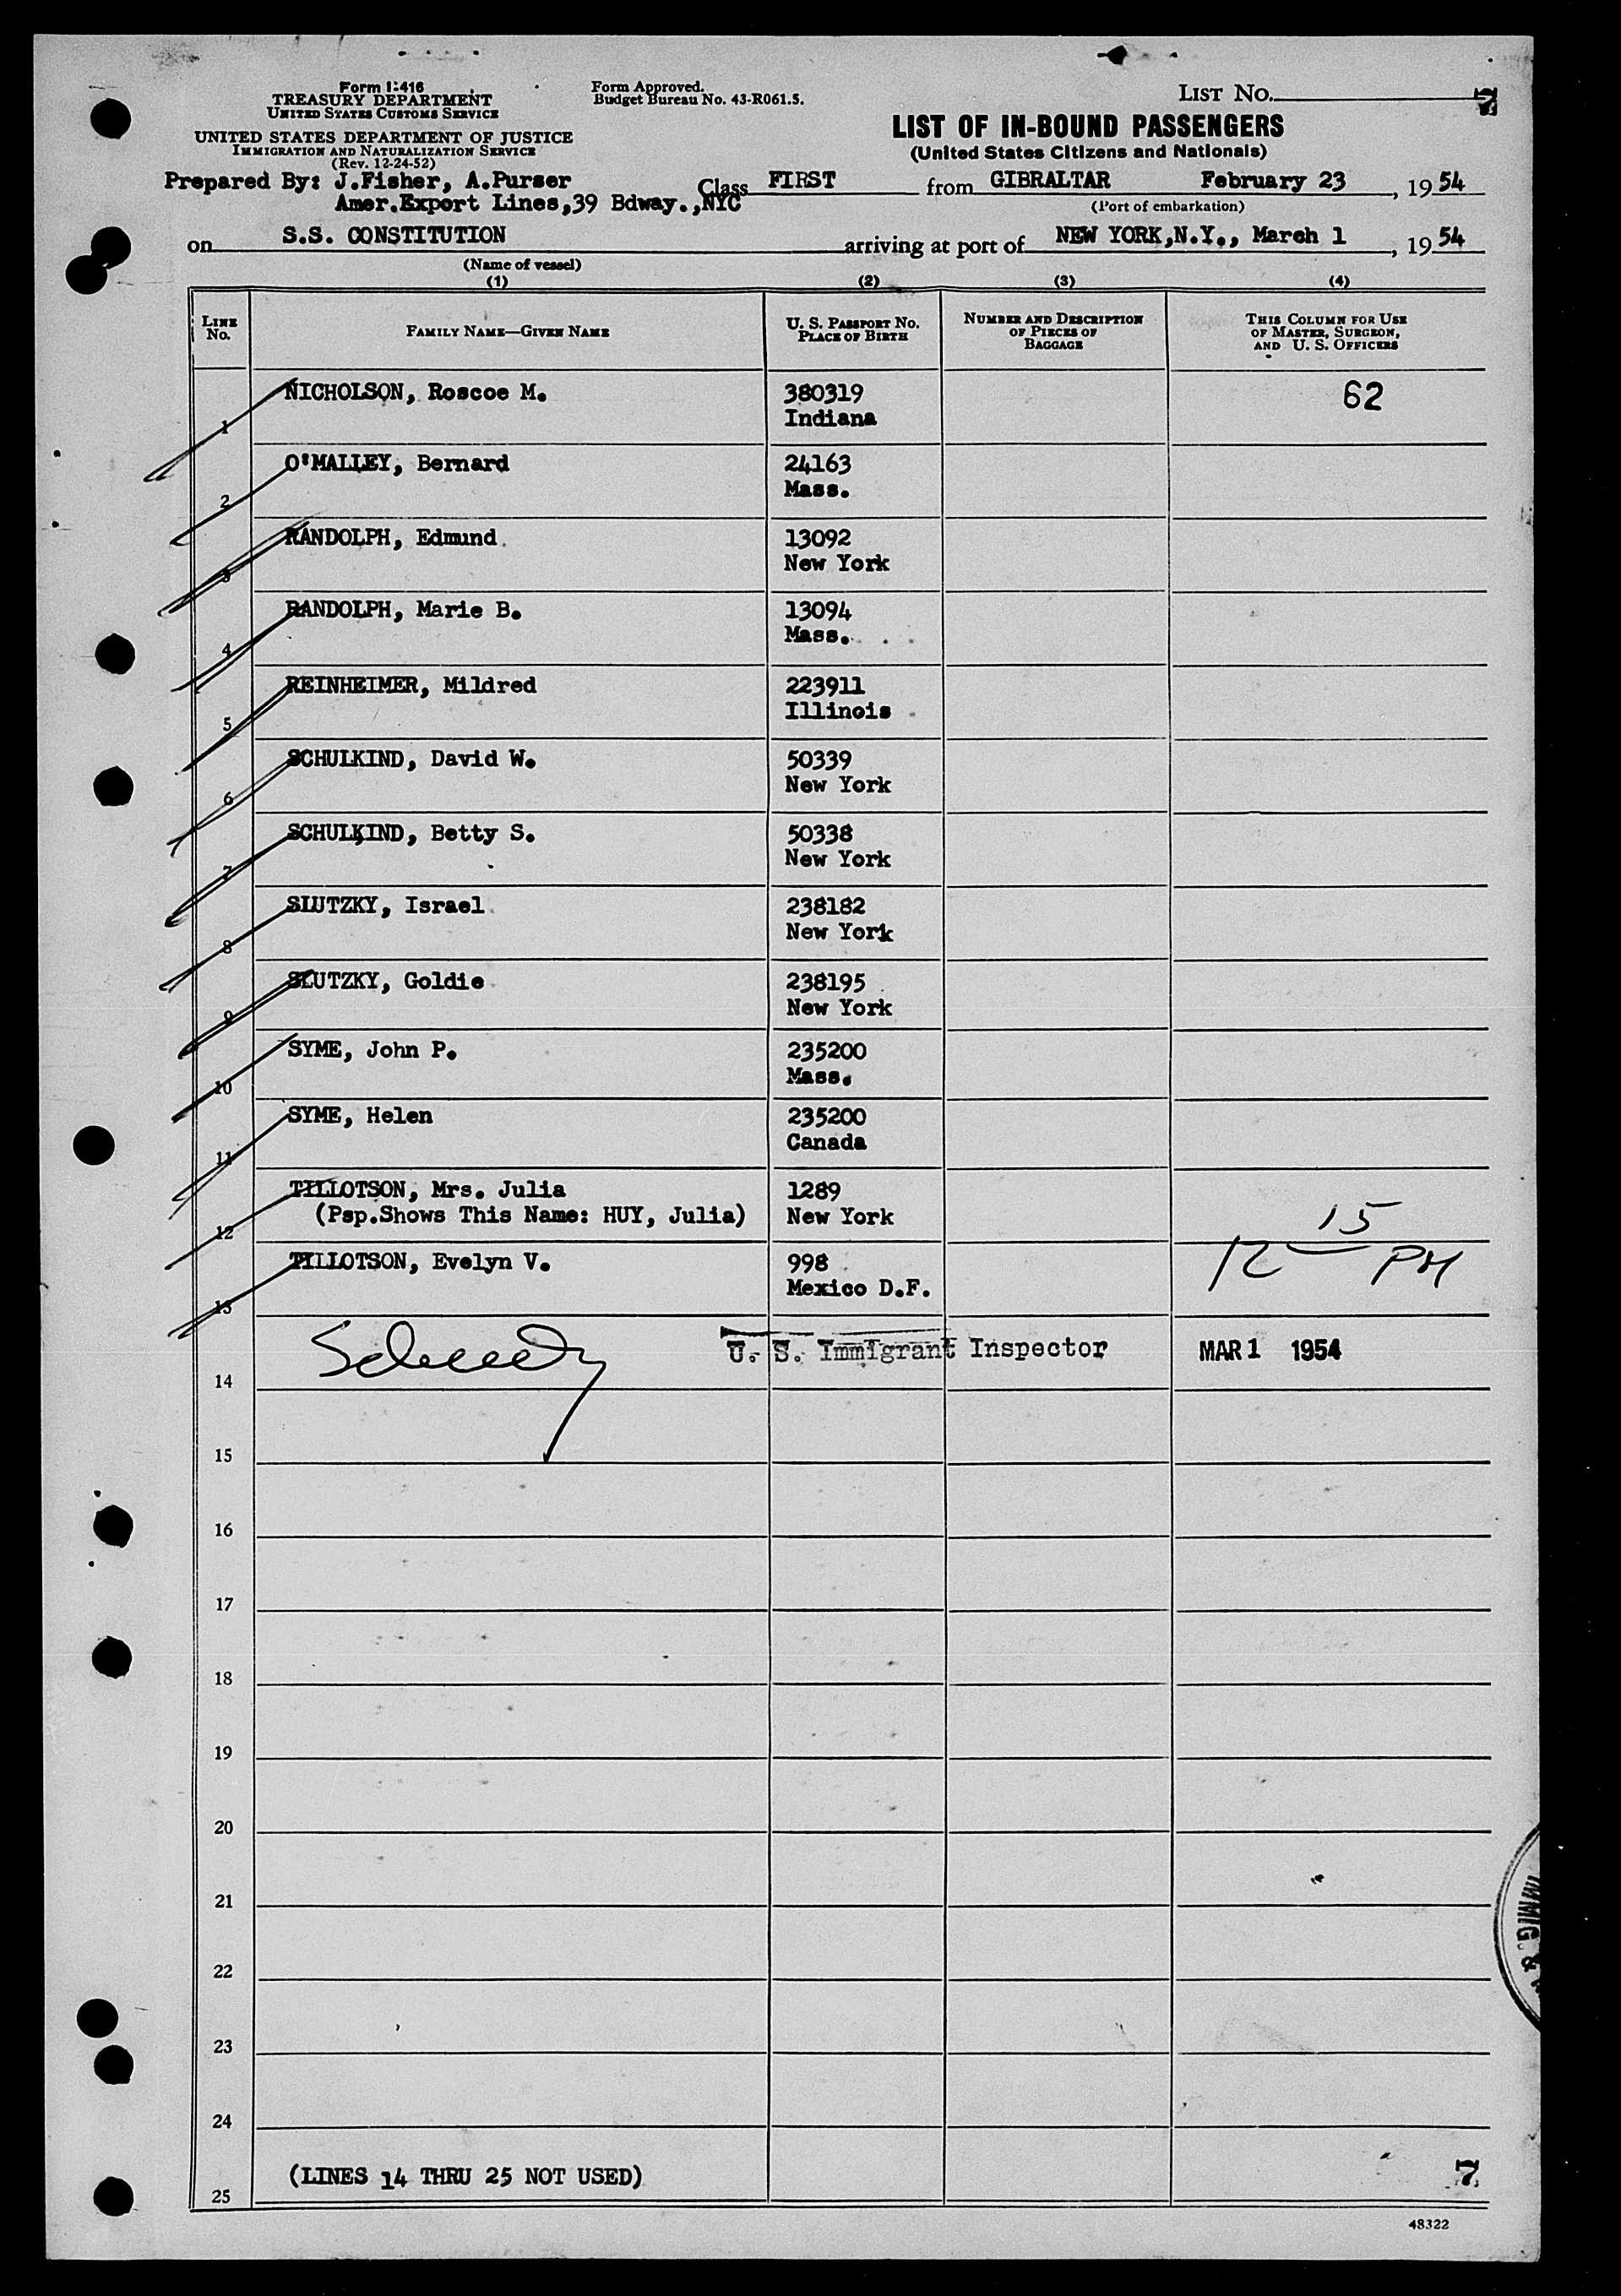 Form I-416
TREASURY DEPARTMENT
UNITED STATES CUSTOMS SERVICE
UNITED STATES DEPARTMENT OF JUSTICE
IMMIGRATION AND NATURALIZATION SERVICE
(Rev. 12-24-52)
Form Approved.
Budget Bureau No. 43-R061.5.
LIST NO. 7
LIST OF IN-BOUND PASSENGERS
(United States Citizens and Nationals)
Prepared By: J.Fisher, A.Purser
Amer.Export Lines,39 Bdway.,NYC
Class FIRST from GIBRALTAR February 23, 1954
(Port of embarkation)
on S.S. CONSTITUTION arriving at port of NEW YORK,N.Y., March 1, 1954
(Name of vessel)
(1) (2) (3) (4)
LINE No. FAMILY NAME—GIVEN NAME U. S. PASSPORT NO. PLACE OF BIRTH NUMBER AND DESCRIPTION OF PIECES OF BAGGAGE THIS COLUMN FOR USE OF MASTER, SURGEON, AND U. S. OFFICERS
1 NICHOLSON, Roscoe M. 380319 62
Indiana
2 O'MALLEY, Bernard 24163
Mass.
3 RANDOLPH, Edmund 13092
New York
4 RANDOLPH, Marie B. 13094
Mass.
5 REINHEIMER, Mildred 223911
Illinois
6 SCHULKIND, David W. 50339
New York
7 SCHULKIND, Betty S. 50338
New York
8 SLUTZKY, Israel 238182
New York
9 SLUTZKY, Goldie 238195
New York
10 SYME, John P. 235200
Mass.
11 SYME, Helen 235200
Canada
12 TILLOTSON, Mrs. Julia 1289
(Psp.Shows This Name: HUY, Julia) New York
13 TILLOTSON, Evelyn V. 998
Mexico D.F.
12 15 PM
U. S. Immigrant Inspector MAR 1 1954
14
15
16
17
18
19
20
21
22
23
24
25 (LINES 14 THRU 25 NOT USED) 7
48322
IMMIG. &